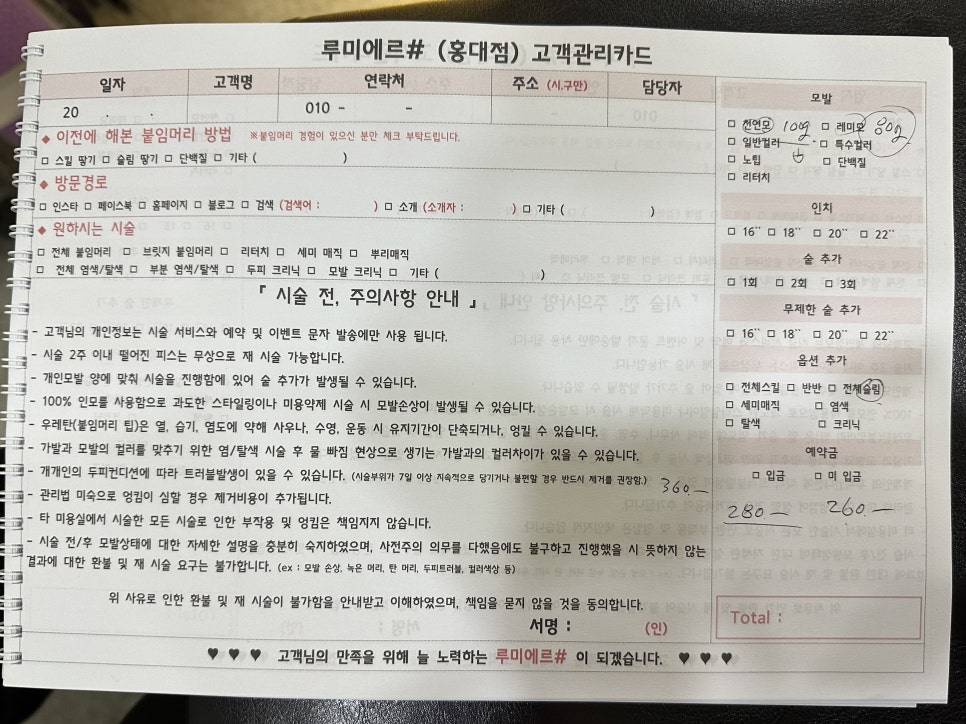 루미에르# (홍대점) 고객관리카드
일자 고객명 연락처 주소 (시,구만) 담당자
20 . . 010 - -
◆ 이전에 해본 붙임머리 방법 ※붙임머리 경험이 있으신 분만 체크 부탁드립니다.
□ 스킬 땋기 □ 슬림 땋기 □ 단백질 □ 기타 ( )
◆ 방문경로
□ 인스타 □ 페이스북 □ 홈페이지 □ 블로그 □ 검색 (검색어 : ) □ 소개 (소개자 : ) □ 기타 ( )
◆ 원하시는 시술
□ 전체 붙임머리 □ 브릿지 붙임머리 □ 리터치 □ 세미 매직 □ 뿌리매직
□ 전체 염색/탈색 □ 부분 염색/탈색 □ 두피 크리닉 □ 모발 크리닉 □ 기타 ( )
「 시술 전, 주의사항 안내 」
- 고객님의 개인정보는 시술 서비스와 예약 및 이벤트 문자 발송에만 사용 됩니다.
- 시술 2주 이내 떨어진 피스는 무상으로 재 시술 가능합니다.
- 개인모발 양에 맞춰 시술을 진행함에 있어 술 추가가 발생될 수 있습니다.
- 100% 인모를 사용함으로 과도한 스타일링이나 미용약제 시술 시 모발손상이 발생될 수 있습니다.
- 우레탄(붙임머리 팁)은 열, 습기, 염도에 약해 사우나, 수영, 운동 시 유지기간이 단축되거나, 엉킬 수 있습니다.
- 가발과 모발의 컬러를 맞추기 위한 염/탈색 시술 후 물 빠짐 현상으로 생기는 가발과의 컬러차이가 있을 수 있습니다.
- 개개인의 두피컨디션에 따라 트러블발생이 있을 수 있습니다. (시술부위가 7일 이상 지속적으로 당기거나 불편할 경우 반드시 제거를 권장함.)
- 관리법 미숙으로 엉킴이 심할 경우 제거비용이 추가됩니다.
- 타 미용실에서 시술한 모든 시술로 인한 부작용 및 엉킴은 책임지지 않습니다.
- 시술 전/후 모발상태에 대한 자세한 설명을 충분히 숙지하였으며, 사전주의 의무를 다했음에도 불구하고 진행했을 시 뜻하지 않는
결과에 대한 환불 및 재 시술 요구는 불가합니다. (ex : 모발 손상, 녹은 머리, 탄 머리, 두피트러블, 컬러색상 등)
위 사유로 인한 환불 및 재 시술이 불가함을 안내받고 이해하였으며, 책임을 묻지 않을 것을 동의합니다.
서명 : (인)
♥ ♥ ♥ 고객님의 만족을 위해 늘 노력하는 루미에르# 이 되겠습니다. ♥ ♥ ♥
모발
□ 천연모 100g □ 레미모 80g
□ 일반컬러 □ 특수컬러
□ 노팁 □ 단백질
□ 리터치
인치
□ 16`` □ 18`` □ 20`` □ 22``
술 추가
□ 1회 □ 2회 □ 3회
무제한 술 추가
□ 16`` □ 18`` □ 20`` □ 22``
옵션 추가
□ 전체스킬 □ 반반 □ 전체슬림
□ 세미매직 □ 염색
□ 탈색 □ 크리닉
예약금
□ 입금 □ 미 입금
360-
280- 260-
Total :